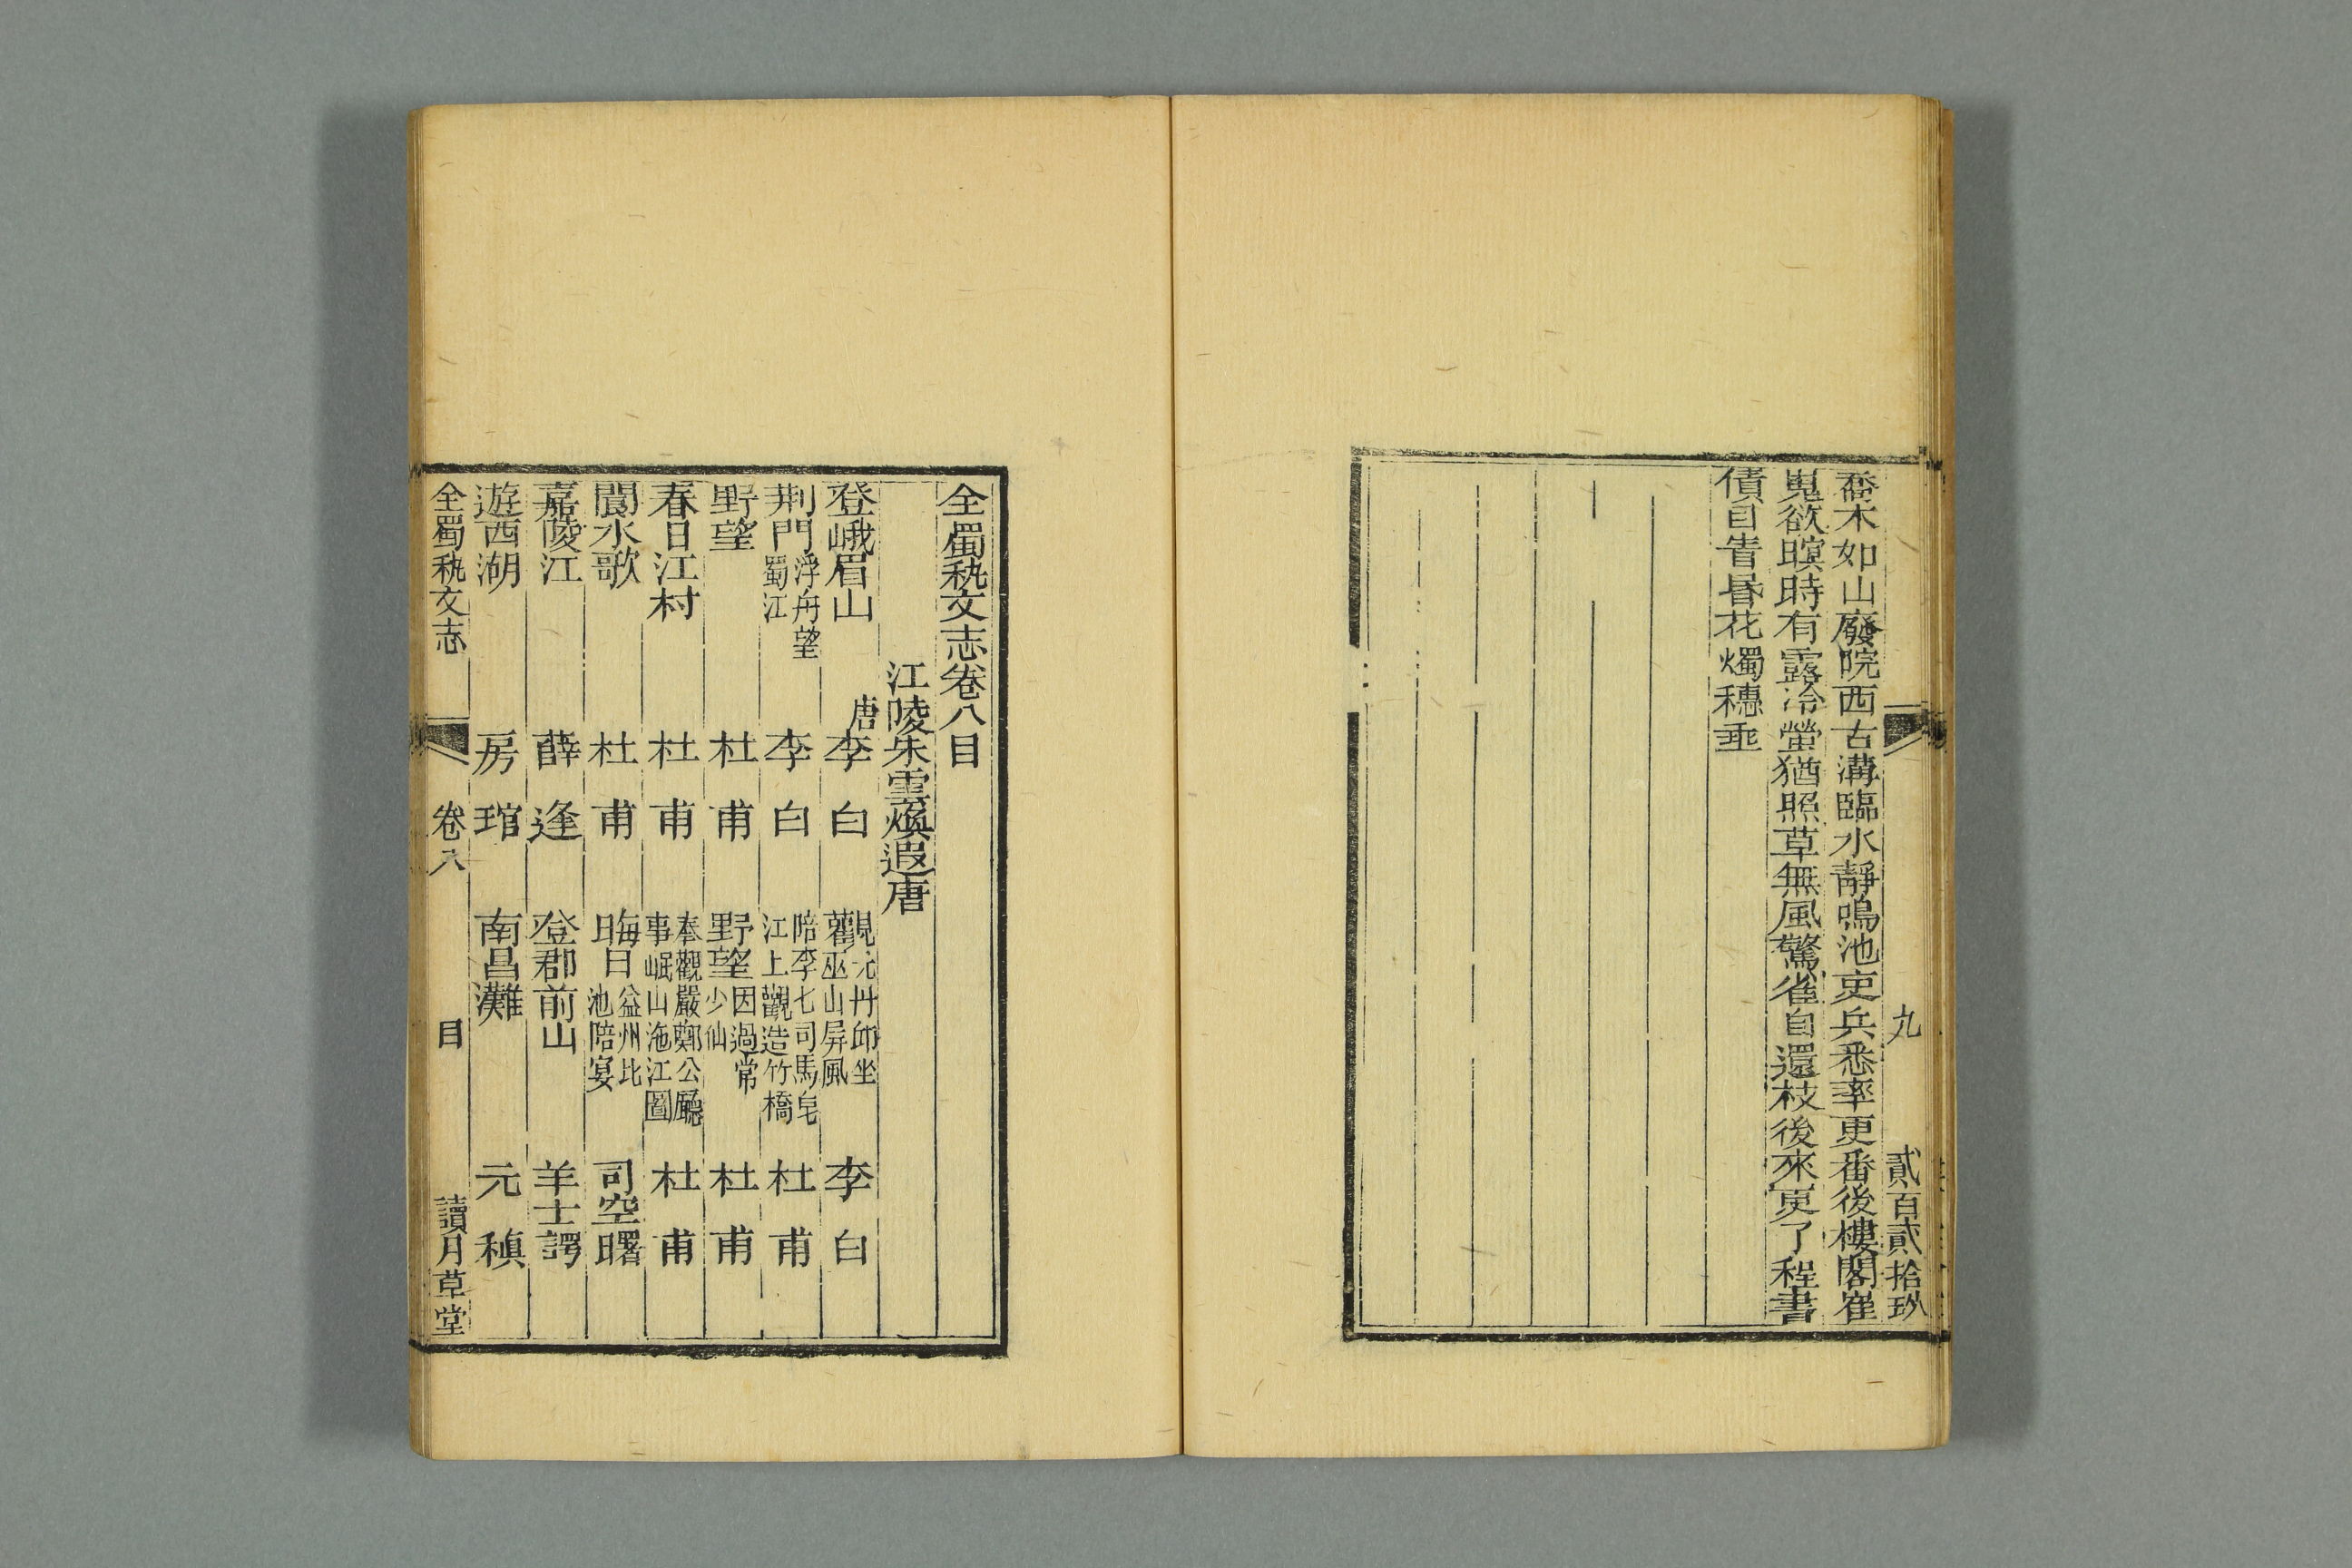 九　貳百貳拾玖
喬木如山廢院西古溝臨水靜鳴池吏兵悉率更番後樓閣崔
嵬欲暝時有露冷螢猶照草無風驚雀自還枝後來更了程書
債目眚昬花燭穗垂
全蜀秇文志卷八目
江陵朱雲煥遐唐
登峨眉山　唐李白　見元丹邱坐舊巫山屏風　李白
荆門浮舟望蜀江　李白　陪李七司馬皂江上觀造竹橋　杜甫
野望　杜甫　野望因過常少仙　杜甫
春日江村　杜甫　奉觀嚴鄭公廳事岷山沲江圖　杜甫
閬水歌　杜甫　晦日益州北池陪宴　司空曙
嘉陵江　薛逢　登郡前山　羊士諤
遊西湖　房琯　南昌灘　元稹
全蜀秇文志　卷八　目　讀月草堂